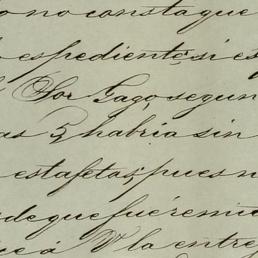 no consta que
espediente si es
Sor Gago, segun
as 5, habria sin
estafetas, pues n
de que fué remit
ue á V la entre